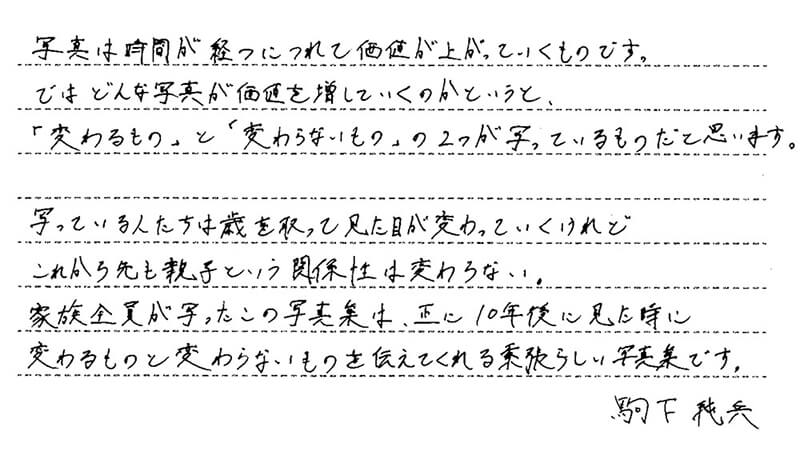 写真は時間が経つにつれて価値が上がっていくものです。
ではどんな写真が価値を増していくのかというと、
「変わるもの」と「変わらないもの」の2つが写っているものだと思います。
写っている人たちは歳を取って見た目が変わっていくけれど
これから先も親子という関係性は変わらない。
家族全員が写ったこの写真集は、正に10年後に見た時に
変わるものと変わらないものを伝えてくれる素張らしい写真集です。
駒下純兵